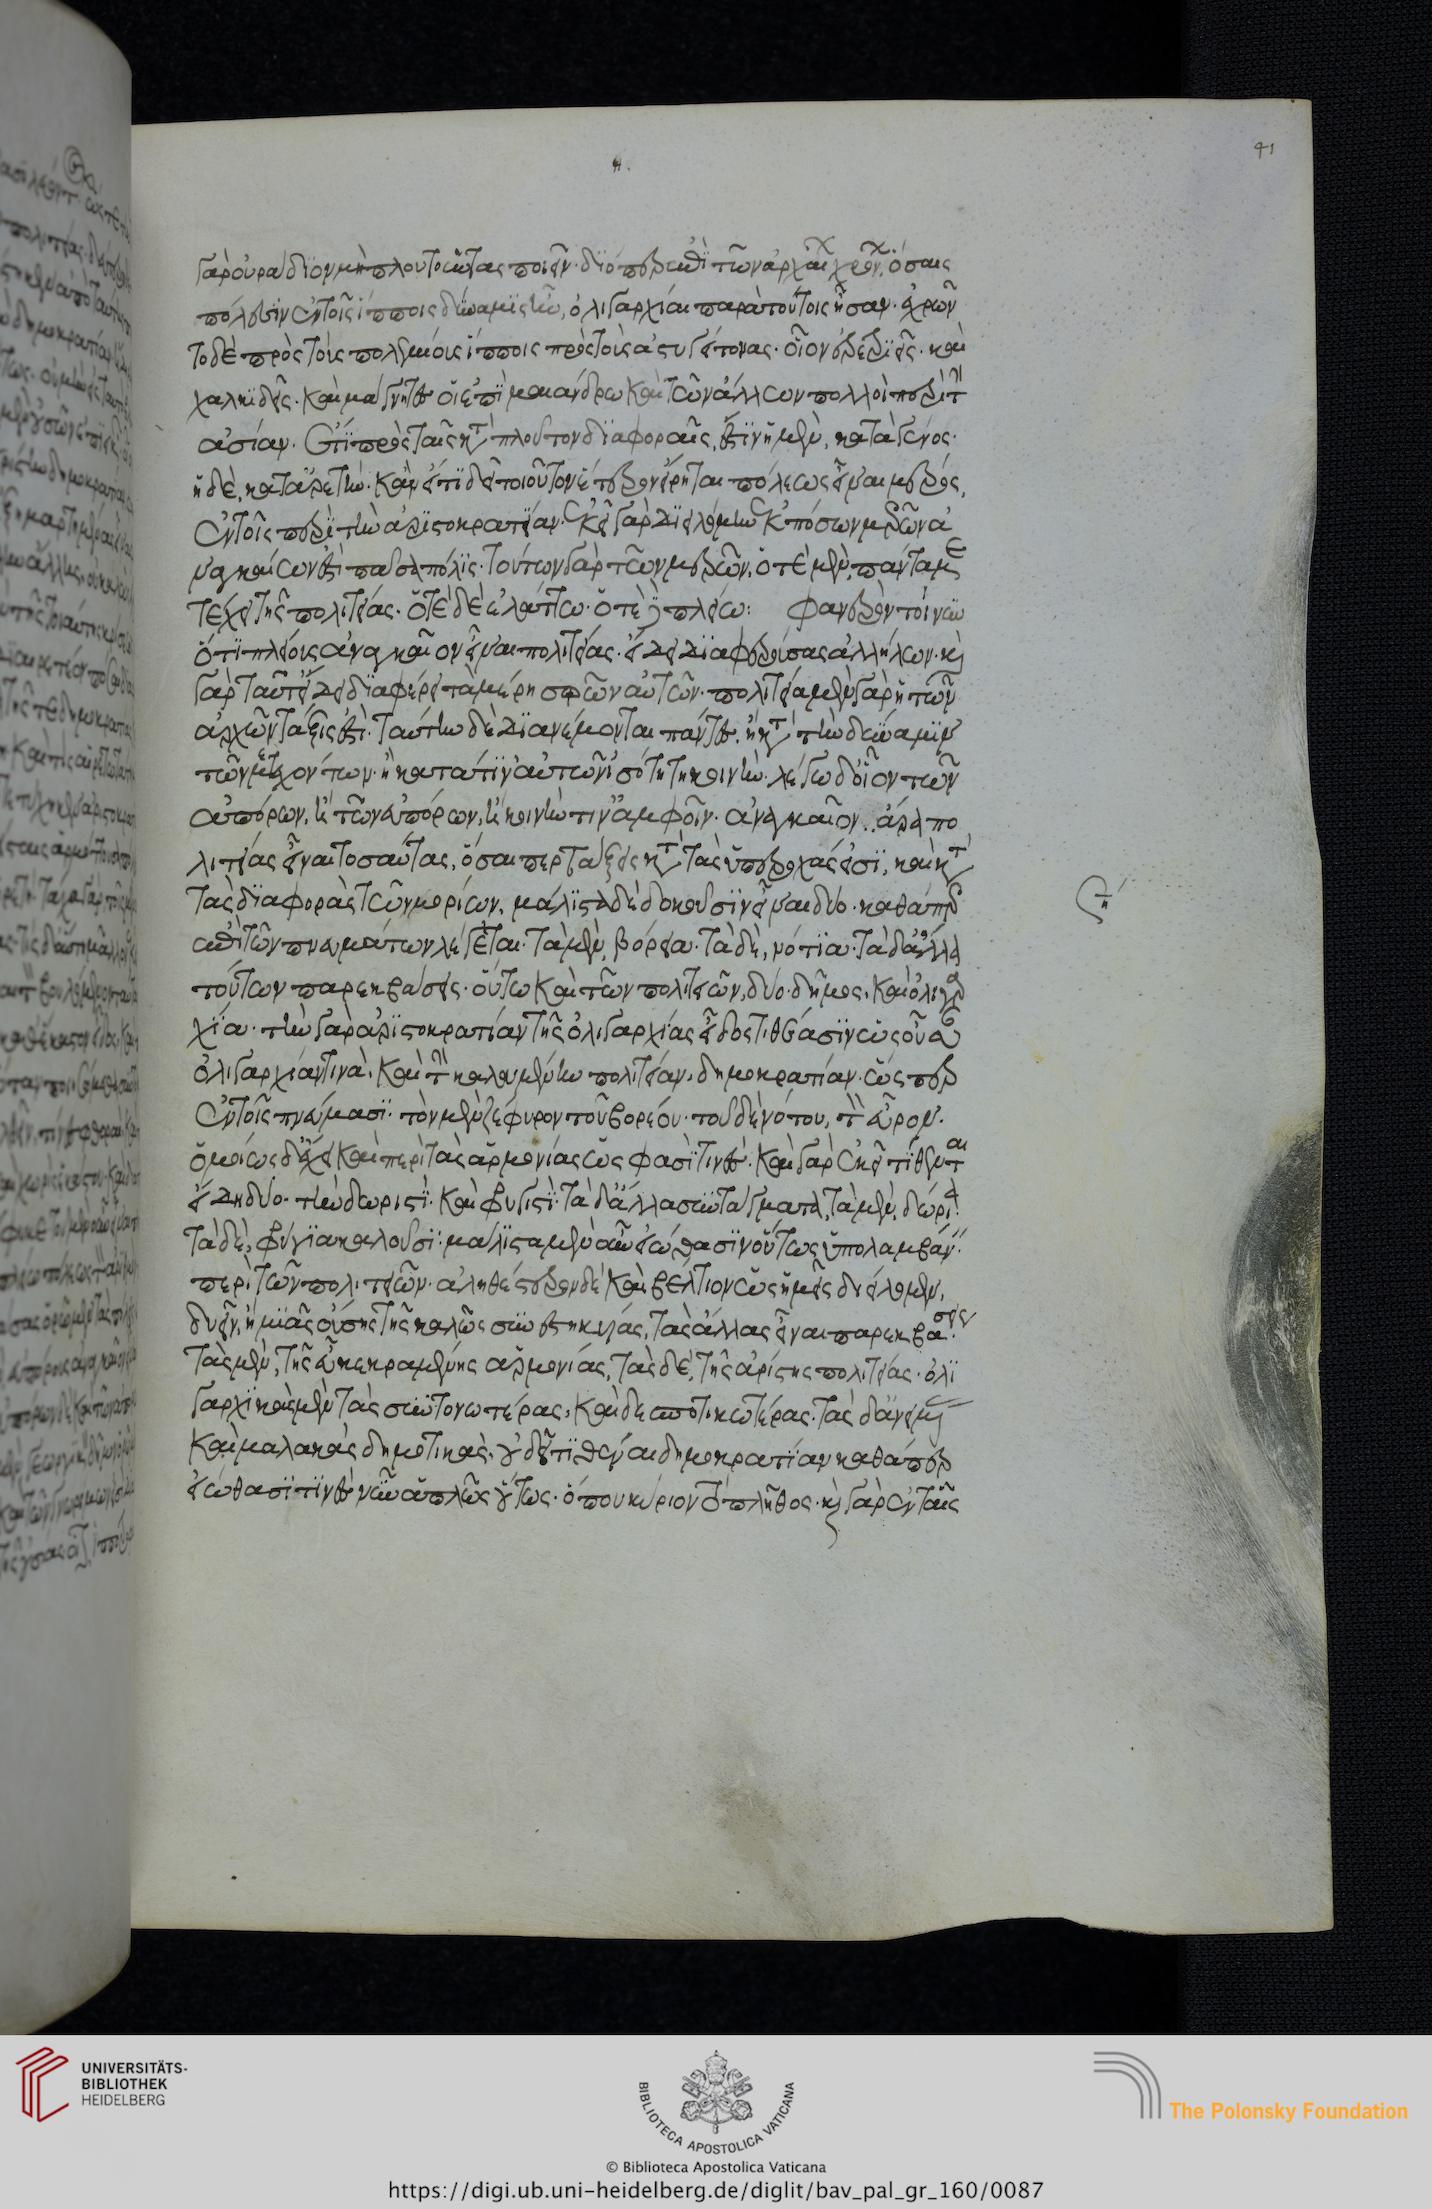 41
γὰρ οὐ ῥάδιον μὴ πλουτοῦντας ποιεῖν· διόπερ ἐπὶ τῶν ἀρχαίων χρόνων, ὅσαις
πόλεσιν ἐν τοῖς ἵπποις δύναμις ἦν, ὀλιγαρχίαι παρὰ τούτοις ἦσαν· ἐχρῶν
το δὲ πρὸς τοὺς πολεμίους ἵπποις πρὸς τοὺς ἀστυγείτονας· οἷον ἐρετριεῖς· καὶ
χαλκιδεῖς· καὶ μάγνητες οἱ ἐπὶ μαιάνδρω καὶ τῶν ἄλλων πολλοὶ περὶ τὴν
ἀσίαν· ἔτι πρὸς ταῖς κατὰ πλοῦτον διαφοραῖς, ἐστὶν ἡ μὲν, κατὰ γένος·
ἡ δὲ, κατ' ἀρετήν· κἂν εἴ τι δὲ τοιοῦτον ἕτερον εἴρηται πόλεως εἶναι μέρος,
ἐν τοῖς περὶ τὴν ἀριστοκρατίαν· ἐκεῖ γὰρ διείλομεν ἐκ πόσων μερῶν ἀ
ναγκαίων ἐστὶ πᾶσα πόλις· τούτων γὰρ τῶν μερῶν, ὁτὲ μὲν, πάντα με
τέχει τῆς πολιτείας· ὁτὲ δὲ ἐλάττω· ὁτὲ δὲ πλείω: φανερὸν τοίνυν
ὅτι πλείους ἀναγκαῖον εἶναι πολιτείας· εἴδει διαφερούσας ἀλλήλων· καὶ
γὰρ ταῦτ' εἴδει διαφέρει τὰ μέρη σφῶν αὐτῶν· πολιτεία μὲν γὰρ ἡ τῶν
ἀρχῶν τάξις ἐστὶ· ταύτην δὲ διανέμονται πάντες· ἢ κατὰ τὴν δύναμιν
τῶν μετεχόντων· ἢ κατά τιν' αὐτῶν ἰσότητη κοινήν· λέγω δ' οἷον τῶν
ἀπόρων, ἢ τῶν εὐπόρων, ἢ κοινήν τιν' ἀμφοῖν· ἀναγκαῖον ἄρα πο
λιτείας εἶναι τοσαύτας, ὅσαι περ τάξεις κατὰ τὰς ὑπεροχὰς εἰσὶ, καὶ κατὰ
τὰς διαφορὰς τῶν μορίων· μάλιστα δὲ δοκοῦσιν εἶναι δύο· καθάπερ
ἐπὶ τῶν πνευμάτων λέγεται· τὰ μὲν, βόρεια· τὰ δὲ, νότια· τὰ δ' ἄλλα
τούτων παρεκβάσεις· οὕτω καὶ τῶν πολιτειῶν, δύο· δῆμος, καὶ ὀλιγαρ
χία· τὴν γὰρ ἀριστοκρατίαν τῆς ὀλιγαρχίας εἶδος τιθέασιν ὡς οὖσαν
ὀλιγαρχίαν τινά, καὶ τὴν καλουμένην πολιτείαν, δημοκρατίαν· ὥσπερ
ἐν τοῖς πνεύμασι· τὸν μὲν ζέφυρον τοῦ βορέου· τοῦ δὲ νότου, τὸν εὖρον·
ὁμοίως δ' ἔχει καὶ περὶ τὰς ἁρμονίας ὥς φασί τινες· καὶ γὰρ ἐκεῖ τίθενται
εἴδη δύο· τὴν δωριστί· καὶ φρυγιστί· τὰ δ' ἄλλα συντάγματα, τὰ μὲν, δώρια
τὰ δὲ, φρύγια καλοῦσι· μάλιστα μὲν οὖν εἰώθασιν οὕτως ὑπολαμβάνειν
περὶ τῶν πολιτειῶν· ἀληθέστερον δὲ καὶ βέλτιον ὡς ἡμεῖς διείλομεν,
δυεῖν, ἢ μιᾶς οὔσης τῆς καλῶς συνεστηκυίας, τὰς ἄλλας εἶναι παρεκβάσεις
τὰς μὲν, τῆς εὖ κεκραμένης ἁρμονίας, τὰς δὲ, τῆς ἀρίστης πολιτείας· ὀλι
γαρχικὰς μὲν τὰς συντονωτέρας, καὶ δεσποτικωτέρας· τὰς δ' ἀνειμένας
καὶ μαλακὰς δημοτικάς· οὐ δεῖ τιθέναι δημοκρατίαν καθάπερ
εἰώθασί τινες νῦν ἁπλῶς οὕτως· ὅπου κύριον τὸ πλῆθος· καὶ γὰρ ἐν ταῖς
UNIVERSITÄTS-
BIBLIOTHEK
HEIDELBERG
BIBLIOTECA APOSTOLICA VATICANA
The Polonsky Foundation
© Biblioteca Apostolica Vaticana
https://digi.ub.uni-heidelberg.de/diglit/bav_pal_gr_160/0087